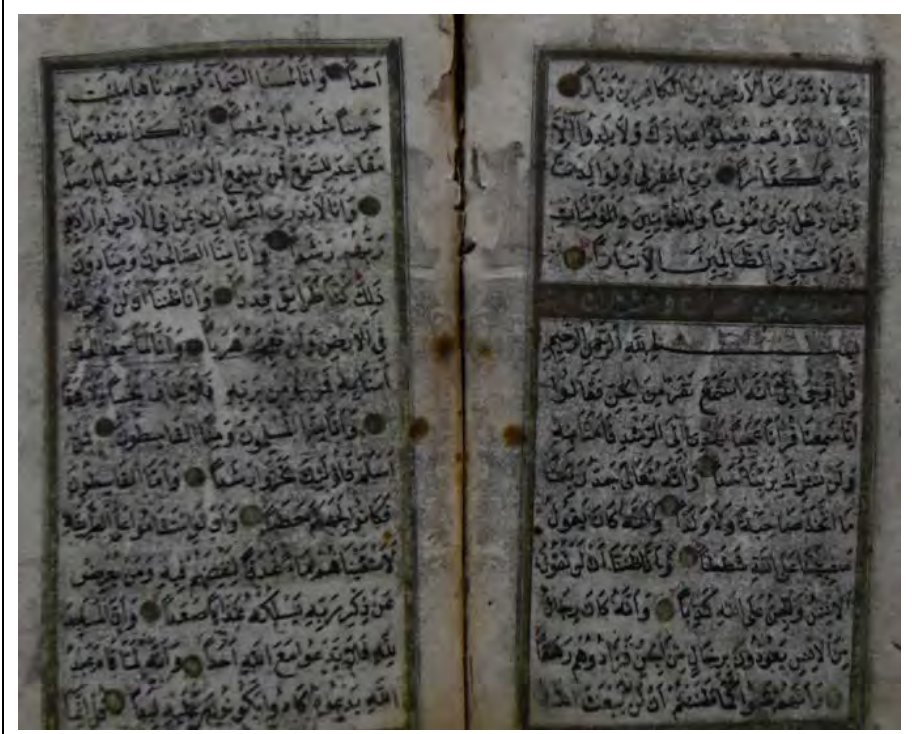 رب لا تذر على الارض من الكافرين ديارا
انك ان تذرهم يضلوا عبادك ولا يلدوا الا
فاجرا كفارا رب اغفر لي ولوالدي
ولمن دخل بيتي مؤمنا وللمؤمنين والمؤمنات
ولا تزد الظالمين الا تبارا
بسم الله الرحمن الرحيم
قل اوحي الي انه استمع نفر من الجن فقالوا
انا سمعنا قرانا عجبا يهدي الى الرشد فامنا به
ولن نشرك بربنا احدا وانه تعالى جد ربنا
ما اتخذ صاحبة ولا ولدا وانه كان يقول
سفيهنا على الله شططا وانا ظننا ان لن تقول
الانس والجن على الله كذبا وانه كان رجال
من الانس يعوذون برجال من الجن فزادوهم رهقا
وانهم ظنوا كما ظننتم ان لن يبعث الله
احدا وانا لمسنا السماء فوجدناها ملئت
حرسا شديدا وشهبا وانا كنا نقعد منها
مقاعد للسمع فمن يستمع الان يجد له شهابا رصدا
وانا لا ندري اشر اريد بمن في الارض ام اراد
ربهم رشدا وانا منا الصالحون ومنا دون
ذلك كنا طرايق قددا وانا ظننا ان لن نعجز الله
في الارض ولن نعجزه هربا وانا لما سمعنا الهدى
امنا به فمن يؤمن بربه فلا يخاف بخسا ولا رهقا
وانا منا المسلمون ومنا القاسطون فمن
اسلم فاولئك تحروا رشدا واما القاسطون
فكانوا لجهنم حطبا وان لو استقاموا على الطريقة
لاسقيناهم ماء غدقا لنفتنهم فيه ومن يعرض
عن ذكر ربه يسلكه عذابا صعدا وان المساجد
لله فلا تدعوا مع الله احدا وانه لما قام عبد
الله يدعوه كادوا يكونون عليه لبدا قل انما